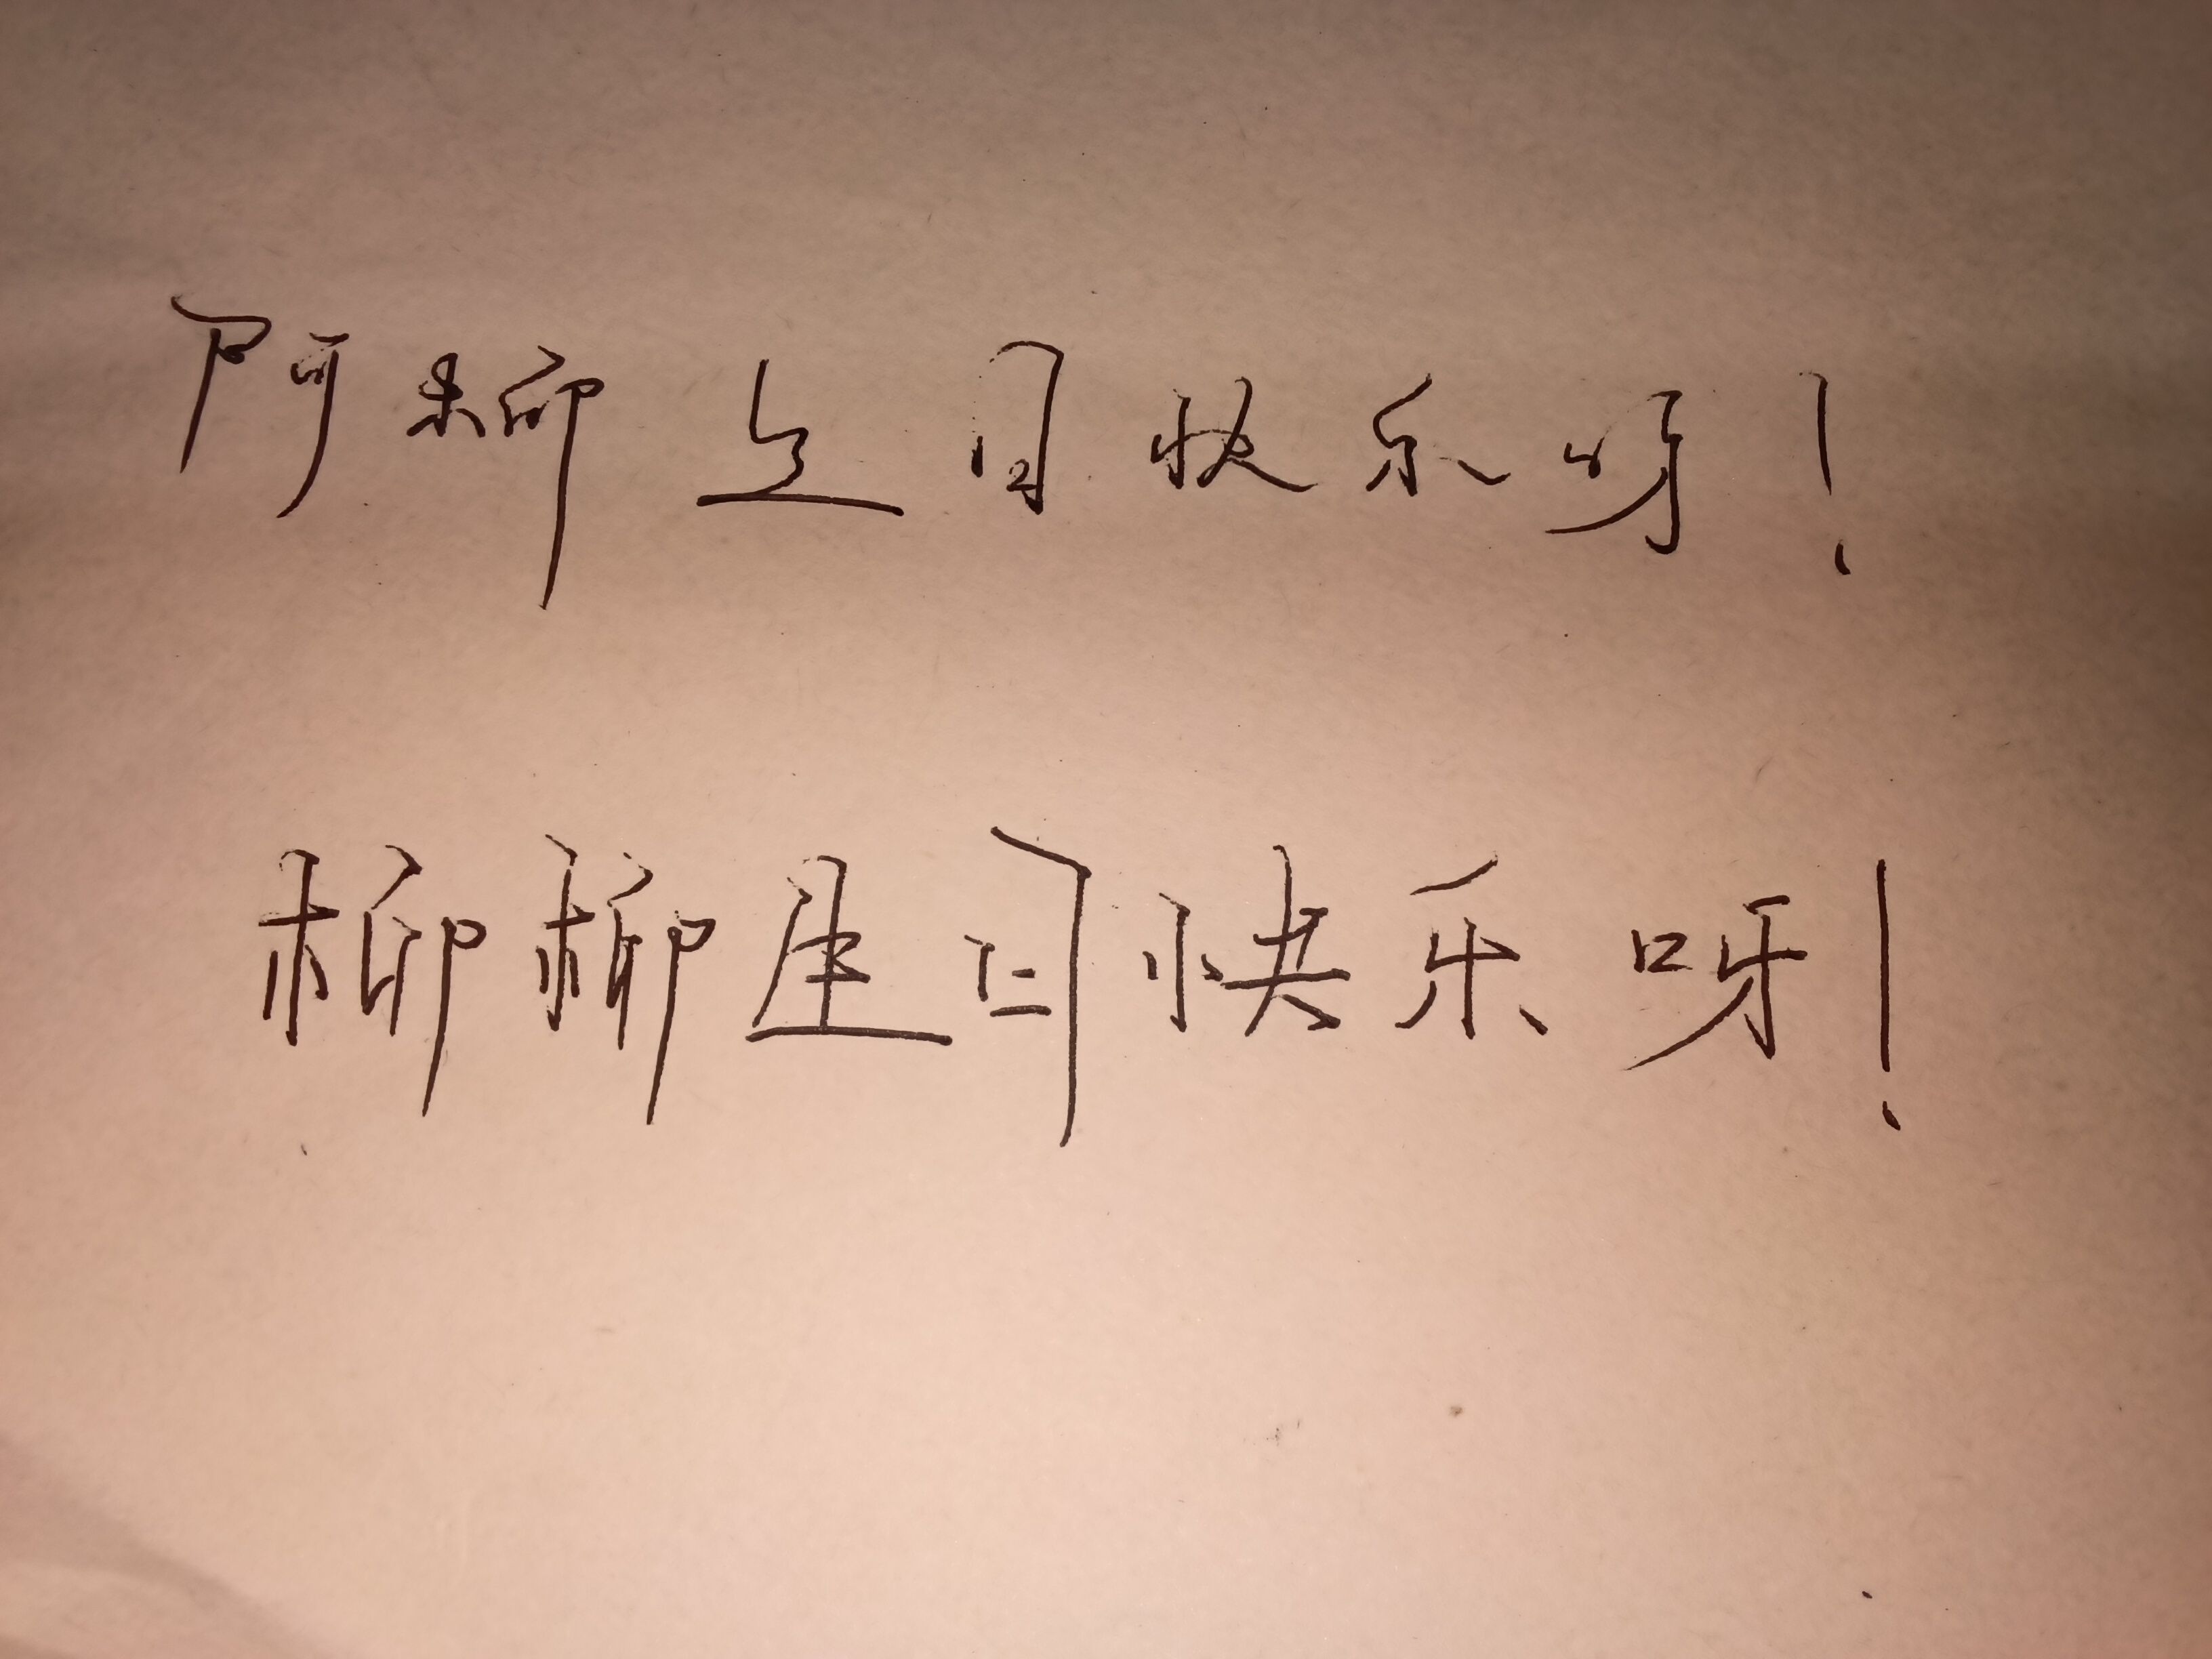 阿柳生日快乐呀！
柳柳生日快乐呀！